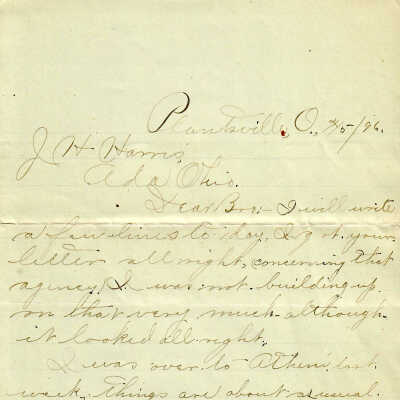 Plantsville, O., 4/5/96.
J H Harris,
Ada, Ohio.
Dear Bro:- I will write
a few lines to day, I got your
letter all right, concerning that
agency, I was not building up
on that very much although
it looked all right,
I was over to Athens last
week, things are about as usual.